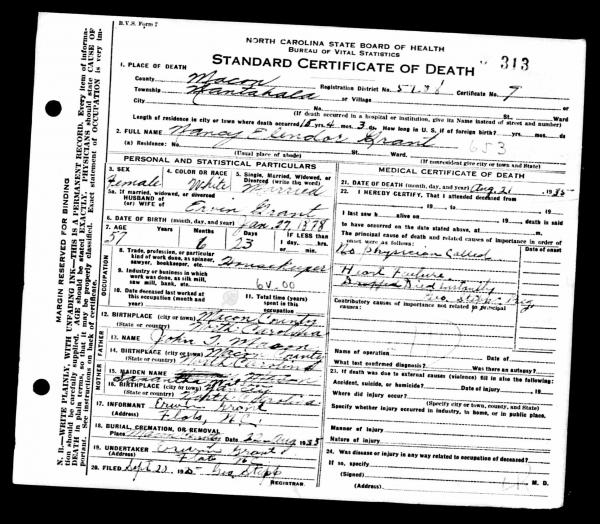 B.V.S. Form 7
NORTH CAROLINA STATE BOARD OF HEALTH
BUREAU OF VITAL STATISTICS
STANDARD CERTIFICATE OF DEATH 313
1. PLACE OF DEATH
County Macon Registration District No. Certificate No. 9
Township Nantahala or Village
City No. St. Ward
(If death occurred in a hospital or institution, give its Name instead of street and number)
Length of residence in city or town where death occurred yrs. 4 mos. 3 ds. How long in U. S. if of foreign birth? yrs. mos. ds.
2. FULL NAME Nancy Grant 653
(a) Residence: No. St. Ward.
(Usual place of abode) (If nonresident give city or town and State)
PERSONAL AND STATISTICAL PARTICULARS
3. SEX
Female
4. COLOR OR RACE
White
5. Single, Married, Widowed, or Divorced (write the word)
Married
5a. If married, widowed, or divorced
HUSBAND OF
(or) WIFE OF Grant
6. DATE OF BIRTH (month, day, and year) Jan. 29, 1878
7. AGE Years Months Days If LESS than 1 day, hrs. or min.
57 6 23
OCCUPATION
8. Trade, profession, or particular kind of work done, as spinner, sawyer, bookkeeper, etc. Housekeeper
9. Industry or business in which work was done, as silk mill, saw mill, bank, etc.
10. Date deceased last worked at this occupation (month and year)
11. Total time (years) spent in this occupation
12. BIRTHPLACE (city or town) Macon County
(State or country) North Carolina
FATHER
13. NAME John T. Mason
14. BIRTHPLACE (city or town) Macon County
(State or country) North Carolina
MOTHER
15. MAIDEN NAME
16. BIRTHPLACE (city or town)
(State or country) North Carolina
17. INFORMANT Grant
(Address) Flats N.C.
18. BURIAL, CREMATION, OR REMOVAL
Place Macon County Date Aug 1935
19. UNDERTAKER Grant
(Address) Flats
20. FILED Sept 20, 19 Geo Stepp
REGISTRAR.
MEDICAL CERTIFICATE OF DEATH
21. DATE OF DEATH (month, day, and year) Aug. 21 1935
22. I HEREBY CERTIFY, That I attended deceased from
19 to 19
I last saw h alive on 19 death is said
to have occurred on the date stated above, at m.
The principal cause of death and related causes of importance in order of onset were as follows:
No Physician Called
Heart Failure
Dropped Dead Instantly
Geo Stepp Reg
Contributory causes of importance not related to principal cause:
Name of operation Date of
What test confirmed diagnosis? Was there an autopsy?
23. If death was due to external causes (violence) fill in also the following:
Accident, suicide, or homicide? Date of injury 19
Where did injury occur?
(Specify city or town, county, and State)
Specify whether injury occurred in industry, in home, or in public place.
Manner of Injury
Nature of injury
24. Was disease or injury in any way related to occupation of deceased?
If so, specify
(Signed) M. D.
(Address)
MARGIN RESERVED FOR BINDING
N. B.—WRITE PLAINLY, WITH UNFADING INK—THIS IS A PERMANENT RECORD. Every item of information should be carefully supplied. AGE should be stated EXACTLY. PHYSICIANS should state CAUSE OF DEATH in plain terms, so that it may be properly classified. Exact statement of OCCUPATION is very important. See instructions on back of certificate.